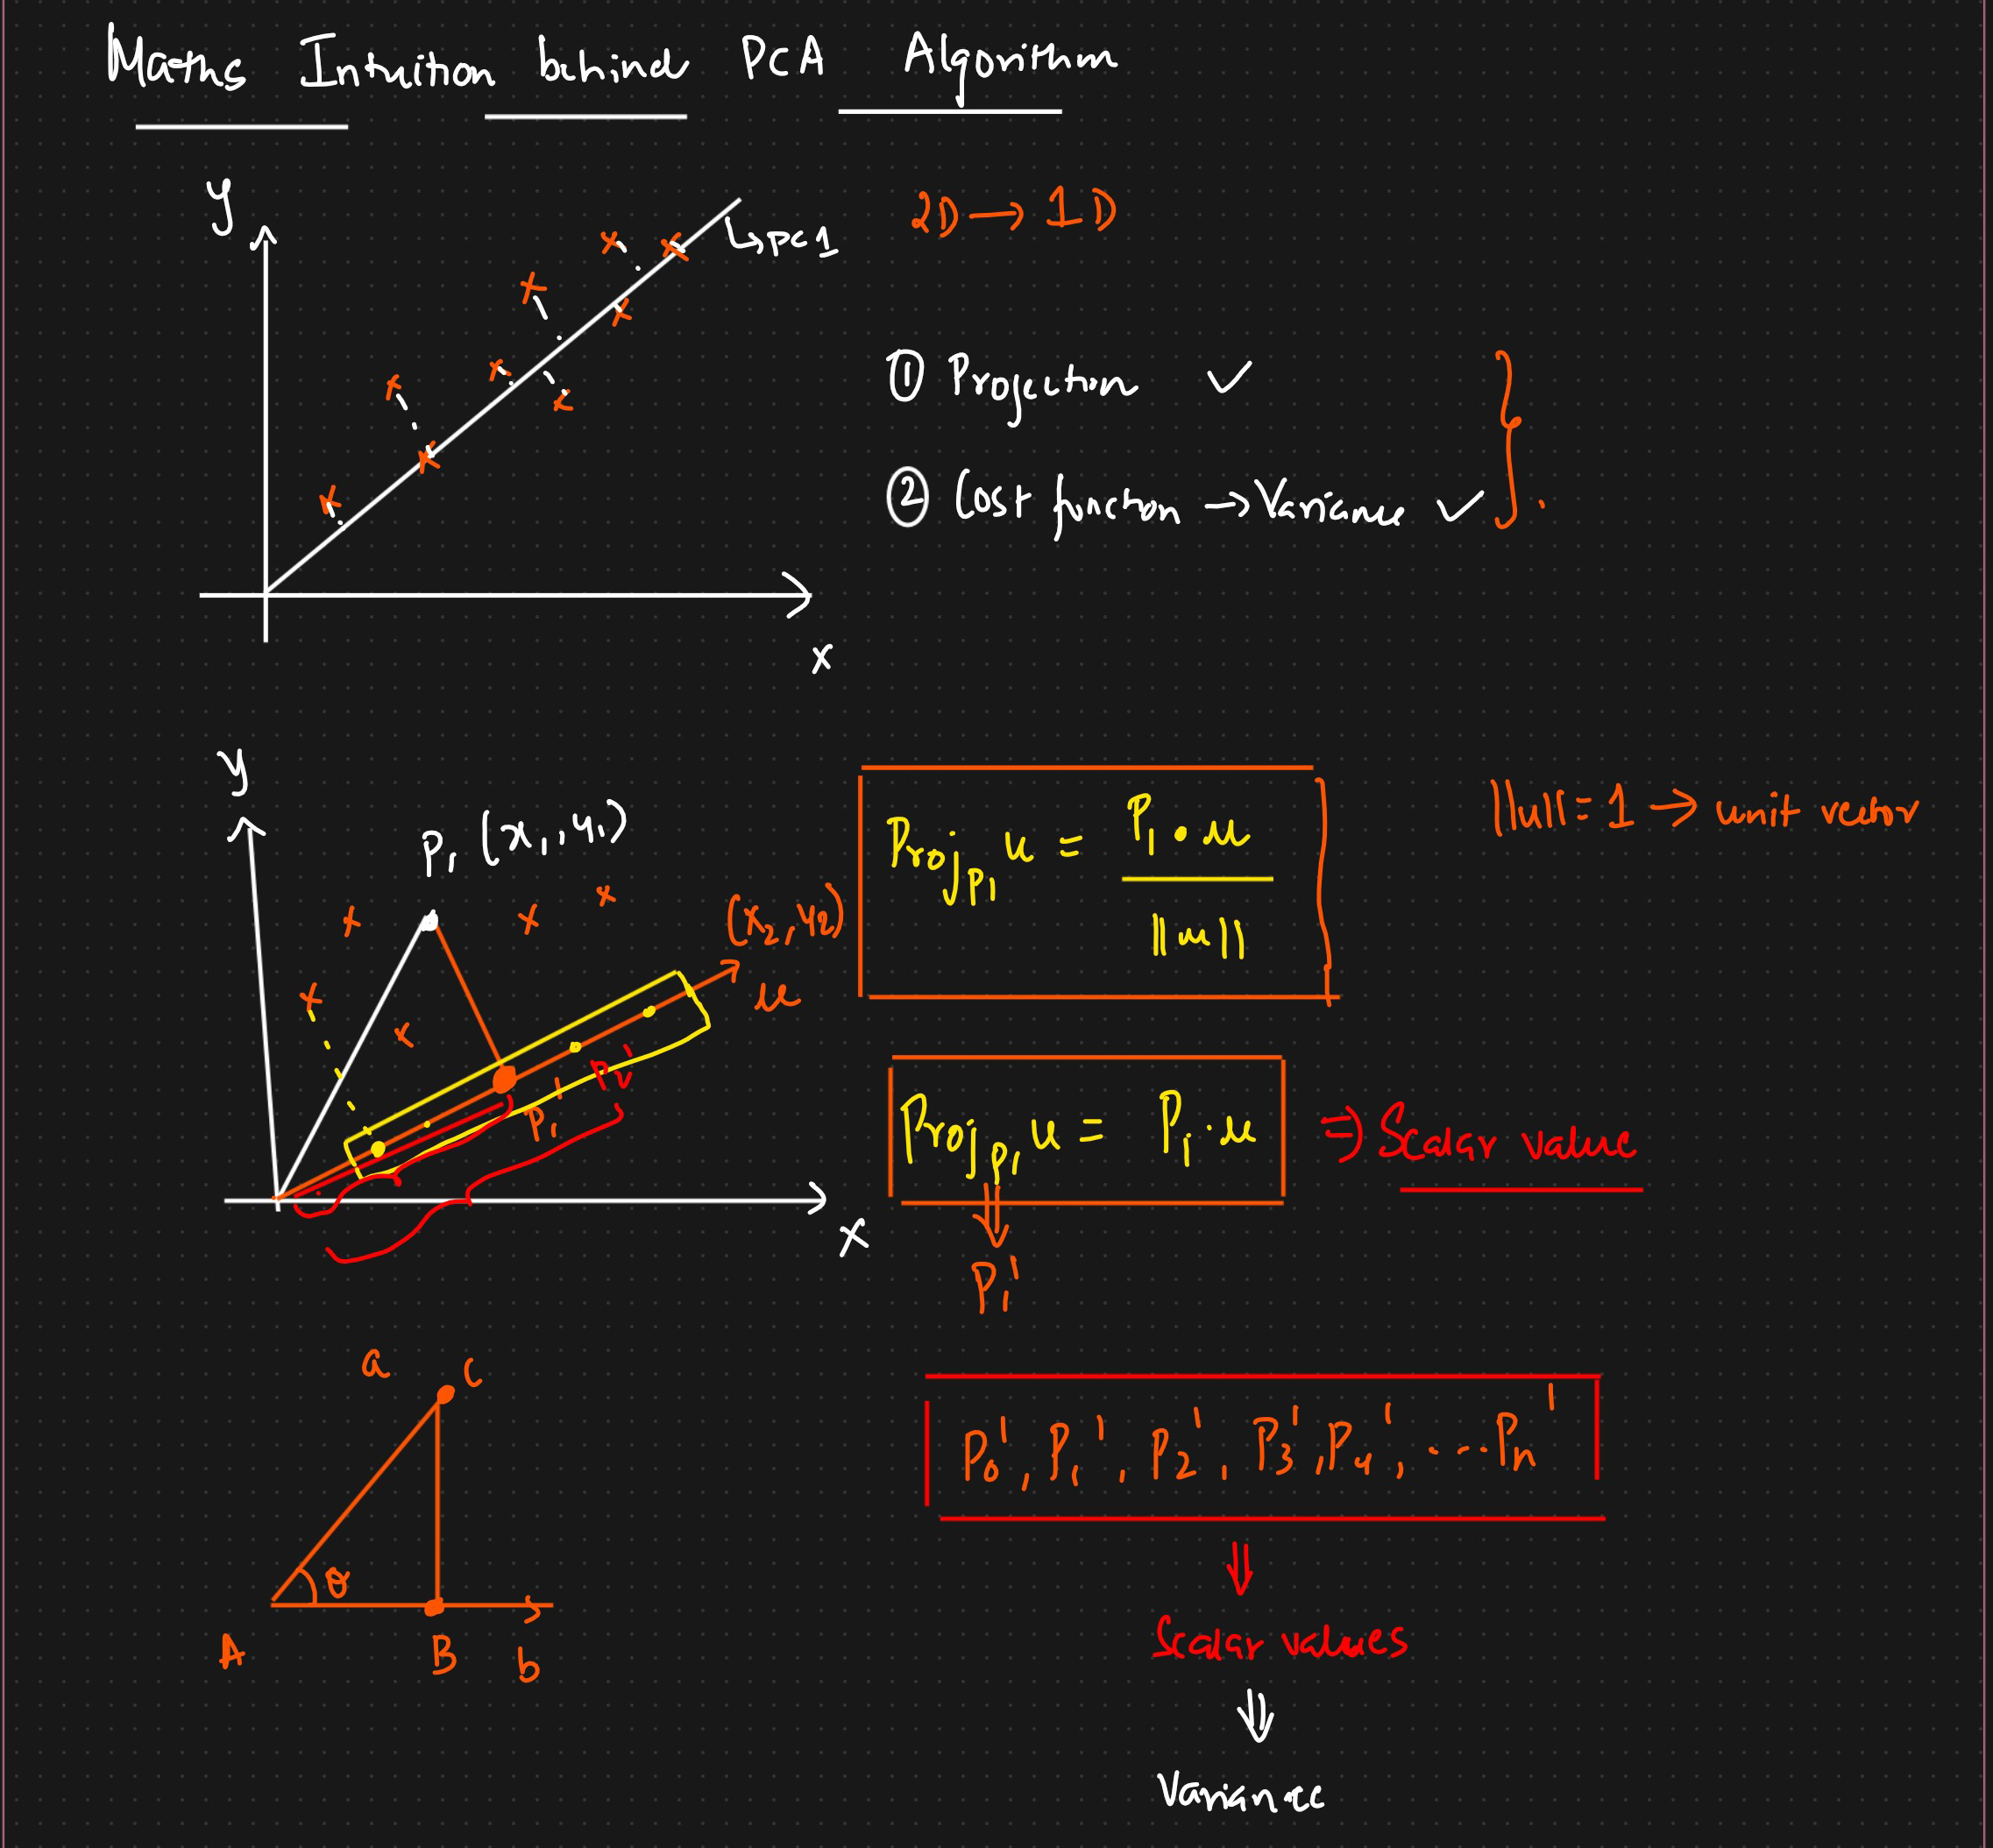 Maths Intuition behind PCA Algorithm
y
PC1
2D → 1D
① Projection ✓
② Cost function → Variance ✓
x
y
P₁ (x₁, y₁)
Proj_P₁ u = P₁ · u / ||u||
||u|| = 1 → unit vector
(x₂, y₂)
u
P₁'
Proj_P₁ u = P₁ · u ⇒ Scalar value
x
P₁'
a C
θ
A B b
P₀', P₁', P₂', P₃', P₄', ... Pn'
⇓
Scalar values
⇓
Variance